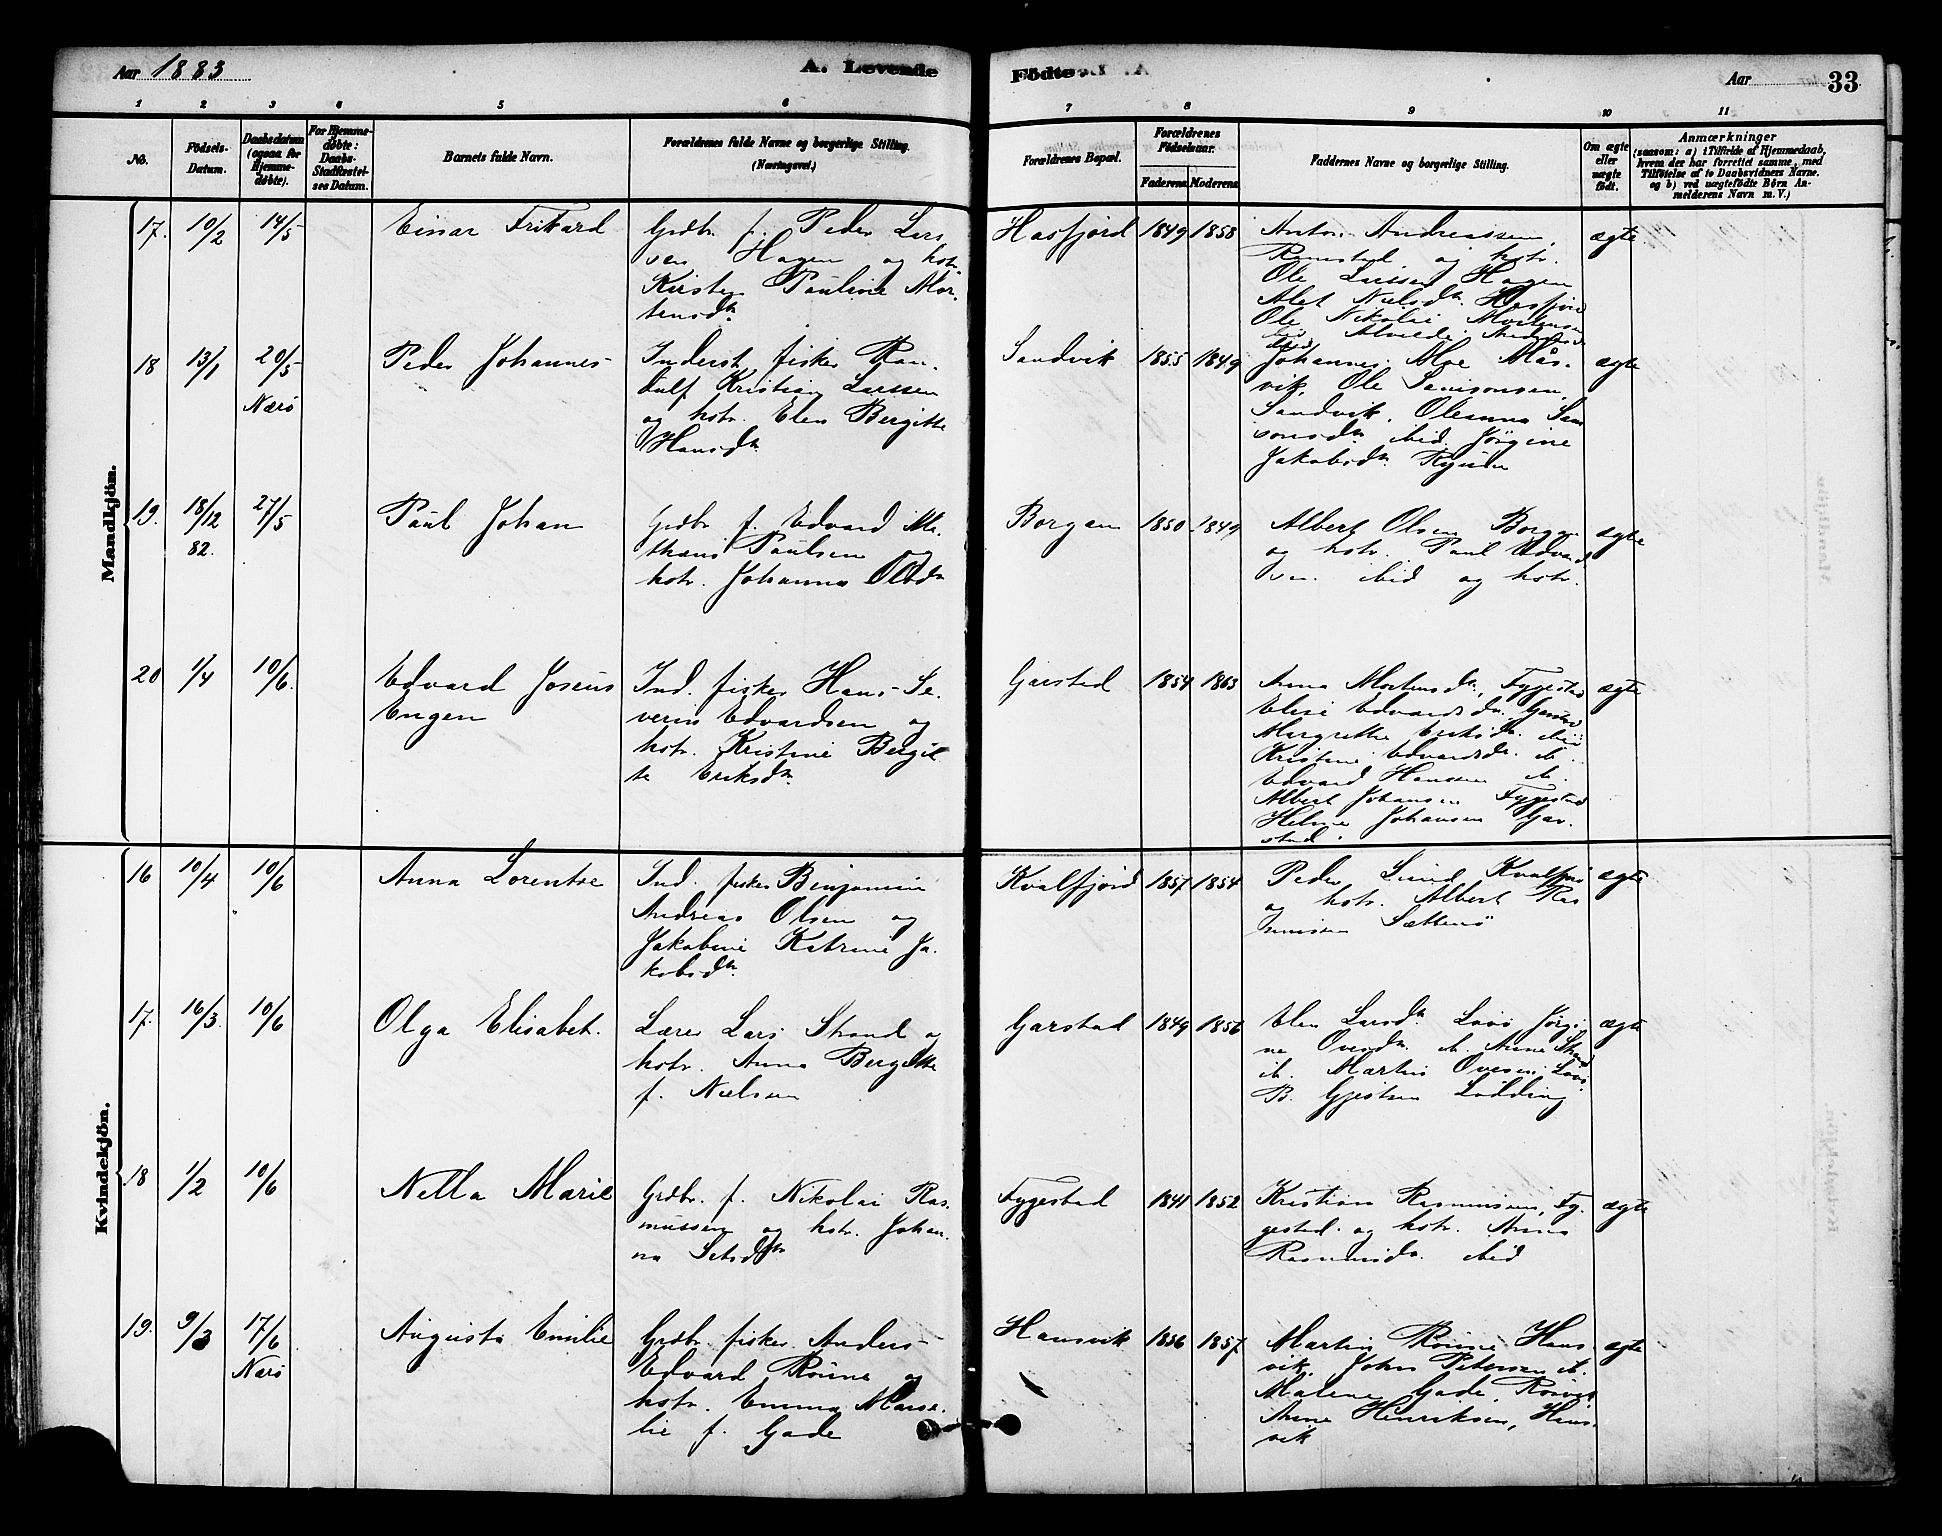 Aar 1883
A. Levende
Födte
Aar
33
1 2 3 4 5 6 7 8 9 10 11
No.
Födsels-
Datum.
Daabsdatum
(ogsaa for
Hjemme-
döbte).
For Hjemme-
döbte:
Daabs-
Stadfæstel-
ses Datum.
Barnets fulde Navn.
Forældrenes fulde Navne og borgerlige Stilling.
(Næringsvei.)
Forældrenes Bopæl.
Forældrenes
Födselsaar.
Faderens Moderens
Faddernes Navne og borgerlige Stilling.
Om ægte
eller
uægte
födt.
Anmærkninger
(saasom: a) i Tilfælde af Hjemmedaab,
hvem der har forrettet samme, med
Tilföielse af to Daabsvidners Navne.
og b) ved uægtefödte Börn An-
melderens Navn m. V.)
Mandkjön.
17. 10/2 14/5
Einar Frikard
Grdbr. f. Peder Lars
sen Hagen og hstr.
Kirsten Pauline Mor-
tensdtr.
Hasfjord 1849 1858
Anton Andreassen,
Ramstad og hstr.
Ole Larssen Hagen
Alet Nielsdtr. Hasfjord
Ole Nikolai Mortensen
ægte
18 13/1 20/5
Nærö
Peder Johannes
Inderst fisker Ran-
dulf Kristian Larssen
og hstr. Elen Bergitte
Hansdtr.
Sandvik 1855 1849
Johannes Moe Mås-
vik, Ole Samsonsen,
Sandvik, Oleanna Sam
sonsdtr. ibid. Jörgine
Jakobsdtr.
ægte
19. 18/12 27/5
82.
Paul Johan
Grdbr f. Edvard Ma-
thæus Paulsen og
hstr. Johanna Olsdtr
Borgan 1850 1849
Albert Olsen Borgan
og hstr. Paul Edvard
sen ibid og hstr.
ægte
20 1/4 10/6.
Edvard Joseus
Engen
Ind. fisker Hans Se-
verin Edvardsen og
hstr. Kristine Bergit
te Eriksdtr.
Garstad 1854 1863
Anna Mortensdtr, Fyggestad
Elise Edvardsdtr. Garstad
Margrette Eriksdtr. ibid
Kristine Edvardsdtr. ib.
Edvard Hanssen ib.
Albert Johansen Fyggestad
Helmer Johansen Gar-
stad.
ægte
Kvindekjön.
16 10/4 10/6
Anna Lorentse
Ind. fisker Benjamin
Andreas Olsen og
Jakobine Katrine Ja-
kobsdtr.
Kvalfjord 1857 1854
Peder Lund Kvalfjord
og hstr. Albert Ras
mussen Sættenö
ægte
17. 16/3. 10/6
Olga Elisabet.
Lærer Lars Strand og
hstr. Anna Bergitte
f. Nielsen
Garstad 1849 1856
Elen Larsdtr. Lovö Jörgi-
ne Ovesdtr. ib. Anne Strand
ib. Martin Ovesen Lovö
B. Gjestsen Lödding
ægte
18 1/2 10/6
Nella Marie
Grdbr. f. Nikolai Ras-
mussen og hstr. Johan-
na Setsdtr
Fyggestad 1841 1852
Kristian Rasmussen, Fy-
gestad og hstr. Anna
Rasmusdtr. ibid
ægte
19. 9/3 17/6
Nærö
Augusta Emilie
Grdbr. fisker Anders
Edvard Rönne og
hstr. Emma Marse-
lie f. Gade
Hansvik 1856 1857
Martin Rönne Hans-
vik, Johan Petersen ib.
Malene Gade, Rörvik
Anne Henriksen, Hans-
vik
ægte